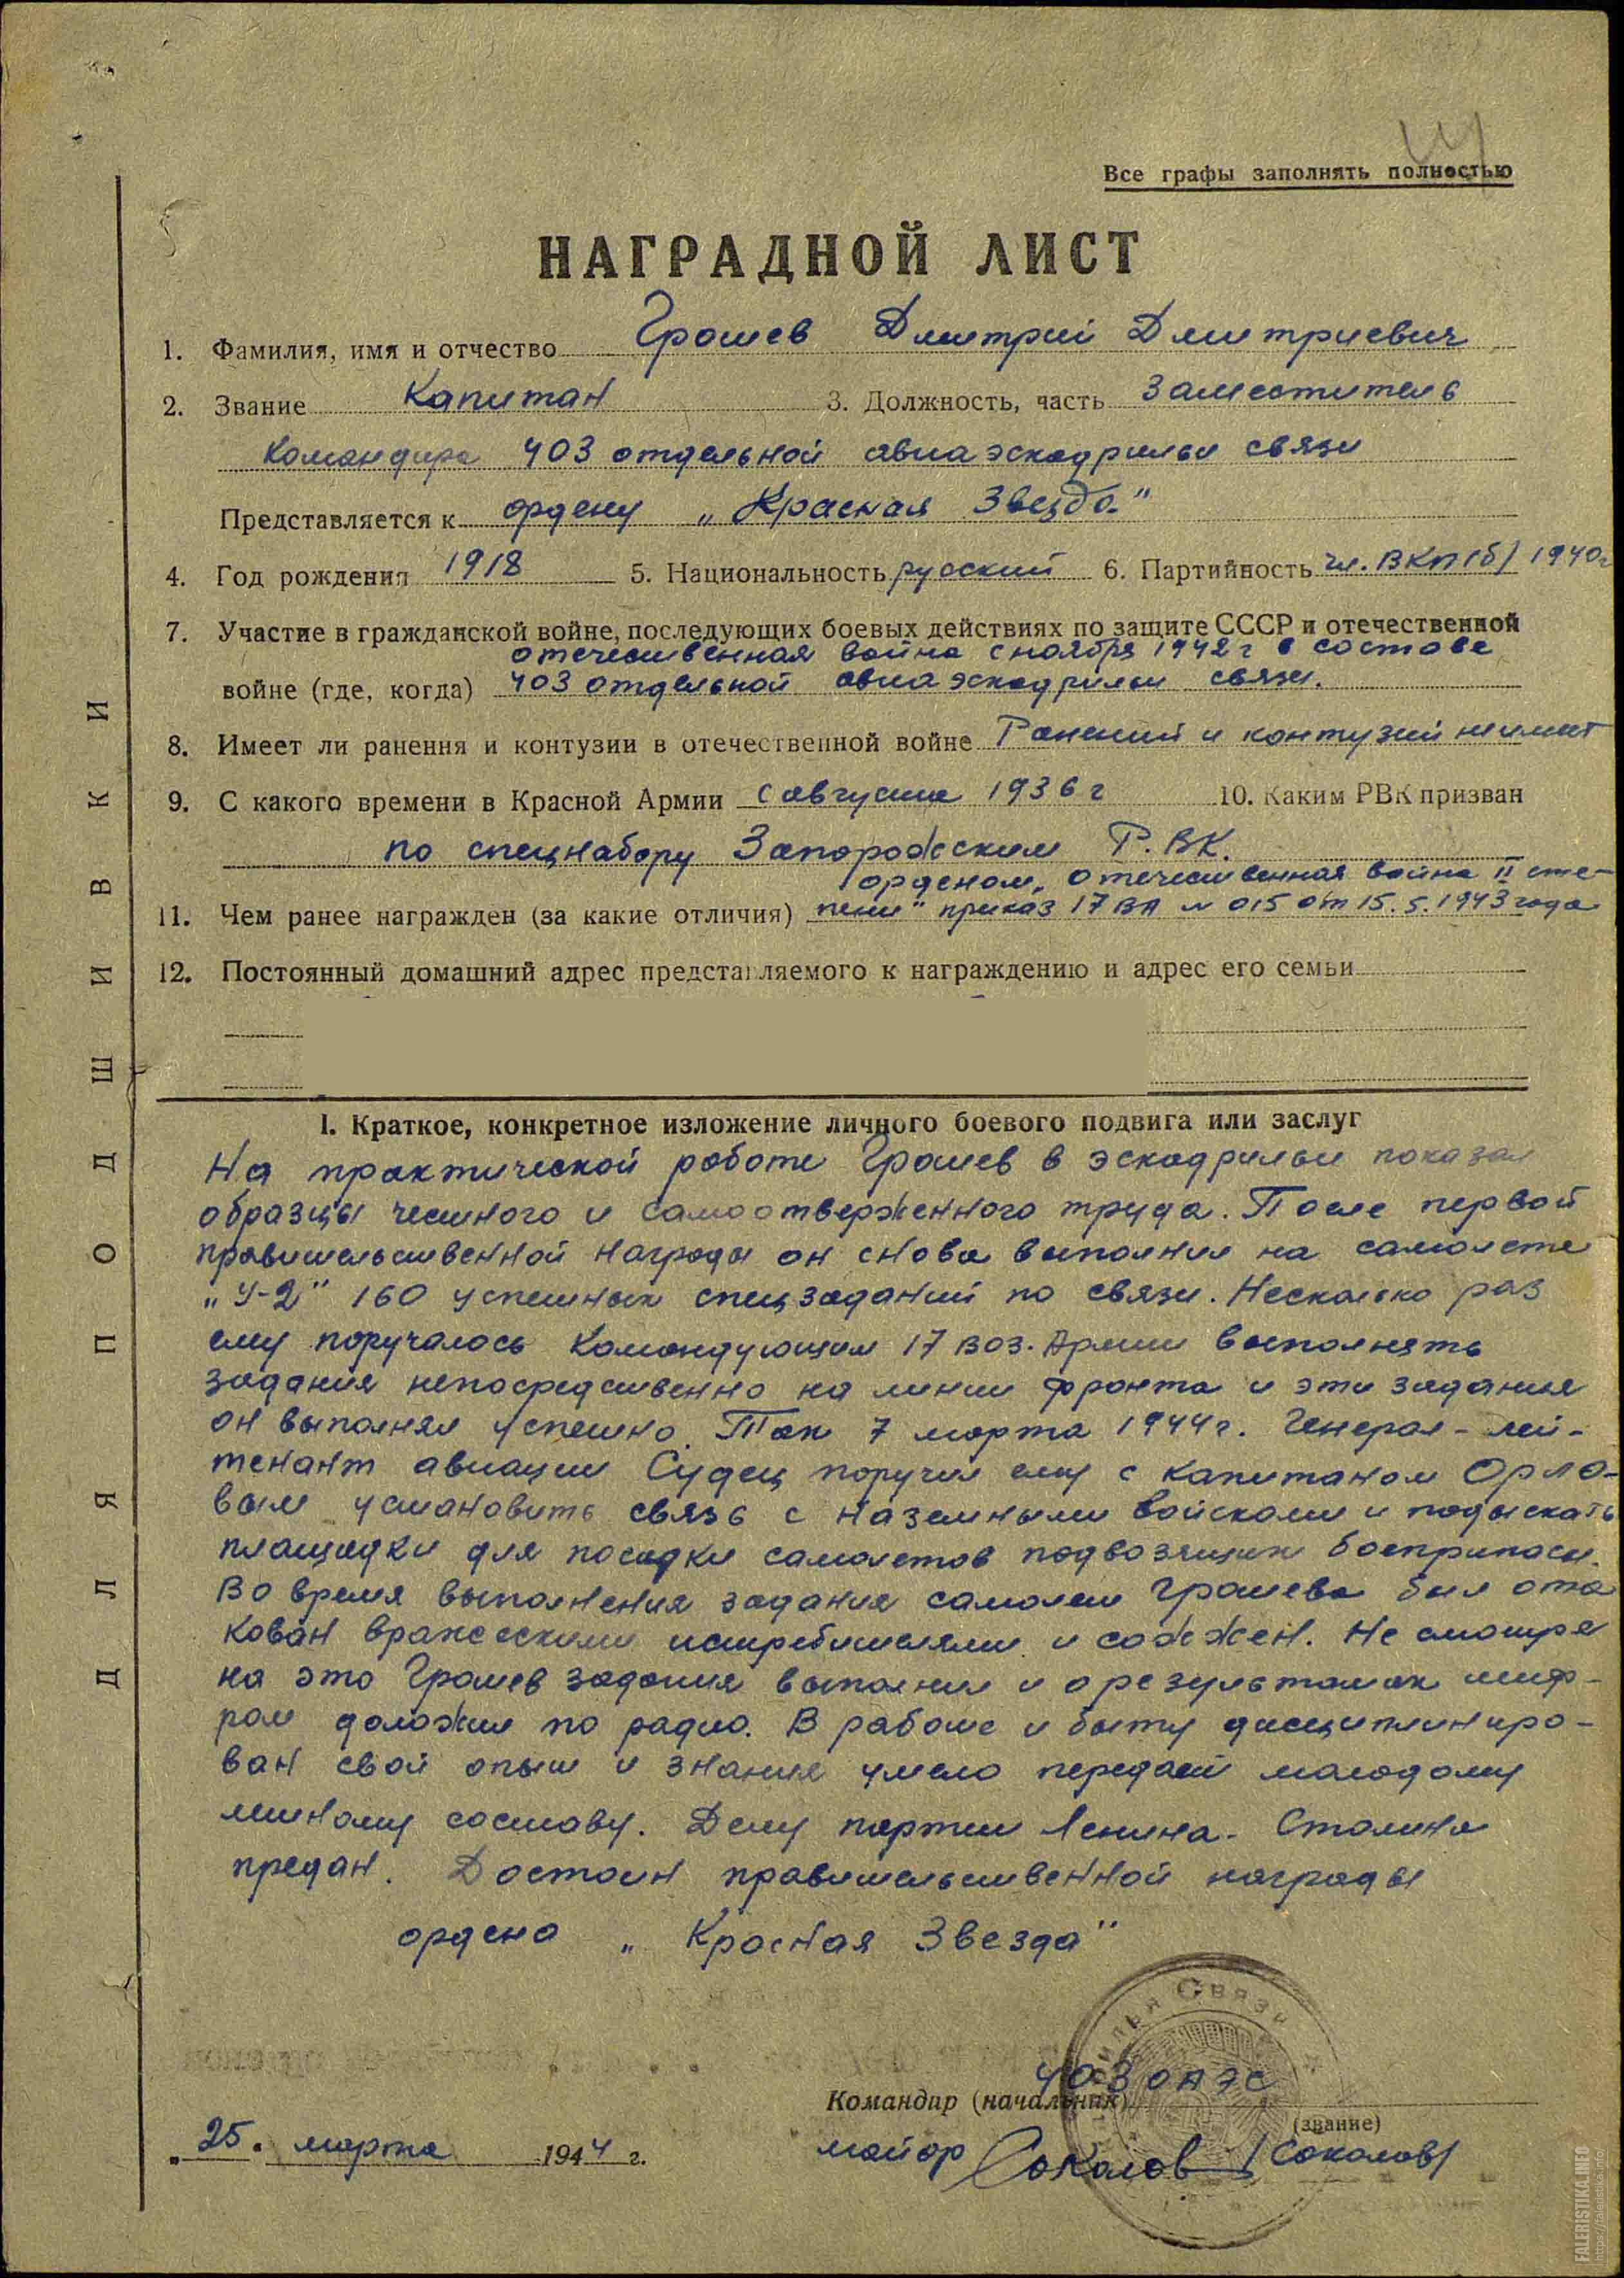 Все графы заполнять полностью
НАГРАДНОЙ ЛИСТ
1. Фамилия, имя и отчество Грошев Дмитрий Дмитриевич
2. Звание Капитан 3. Должность, часть Заместитель
Командира 403 отдельной авиаэскадрильи связи
Представляется к ордену „Красная Звезда"
4. Год рождения 1918 5. Национальность русский 6. Партийность чл. ВКП(б) 1940г
7. Участие в гражданской войне, последующих боевых действиях по защите СССР и отечественной
отечественная война с ноября 1942г в составе
войне (где, когда) 403 отдельной авиаэскадрильи связи.
8. Имеет ли ранения и контузии в отечественной войне Ранений и контузий не имеет
9. С какого времени в Красной Армии с августа 1936г 10. Каким РВК призван
по спецнабору Запорожским Р.ВК.
орденом „Отечественная война II сте-
11. Чем ранее награжден (за какие отличия) пени" приказ 17 ВА № 015 от 15.5.1943 года
12. Постоянный домашний адрес представляемого к награждению и адрес его семьи
I. Краткое, конкретное изложение личного боевого подвига или заслуг
На практической работе Грошев в эскадрильи показал
образцы честного и самоотверженного труда. После первой
правительственной награды он снова выполнил на самолете
„У-2" 160 успешных спецзаданий по связи. Несколько раз
ему поручалось Командующим 17 Воз. Армии выполнять
задания непосредственно на линии фронта и эти задания
он выполнял успешно. Так 7 марта 1944г. Генерал-лей-
тенант авиации Судец поручил ему с капитаном Орло-
вым установить связь с наземными войсками и подыскать
площадки для посадки самолетов подвозящих боеприпасы.
Во время выполнения задания самолет Грошева был ата
кован вражескими истребителями и сожжен. Не смотря
на это Грошев задания выполнил и о результатах шиф-
ром доложил по радио. В работе и быту дисциплиниро-
ван свой опыт и знания умело передает молодому
летному составу. Делу партии Ленина-Сталина
предан. Достоин правительственной награды
ордена „Красная Звезда"
403 ОАЭС
Командир (начальник)
(звание)
„25" марта 1944 г.
майор Соколов /Соколов/
ДЛЯ ПОДШИВКИ
Связи
FALERISTIKA.INFO
https://faleristika.info/